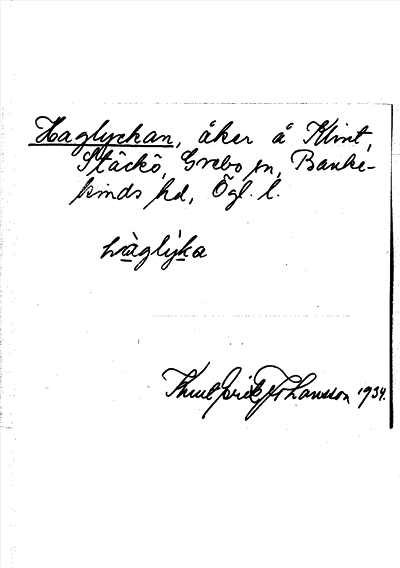 Haglyckan, åker å Klint,
Stäckö, Grebo sn, Banke-
kinds hd, Ögl. l.
hàglỳka
Knut Erik Johansson 1934.